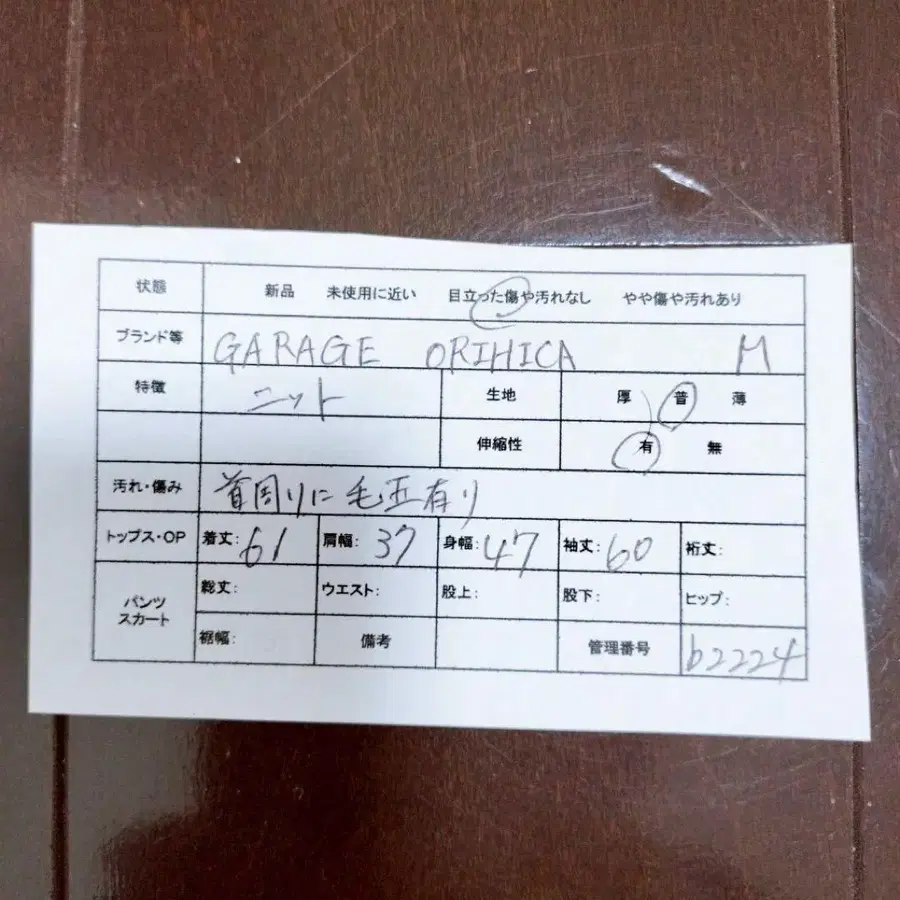 状態 新品 未使用に近い 目立った傷や汚れなし やや傷や汚れあり
ブランド等 GARAGE ORIHICA M
特徴 ニット 生地 厚 普 薄
伸縮性 有 無
汚れ・傷み 首周りに毛玉有り
トップス・OP 着丈: 61 肩幅: 37 身幅: 47 袖丈: 60 裄丈:
パンツ スカート 総丈: ウエスト: 股上: 股下: ヒップ:
裾幅: 備考 管理番号 b2224